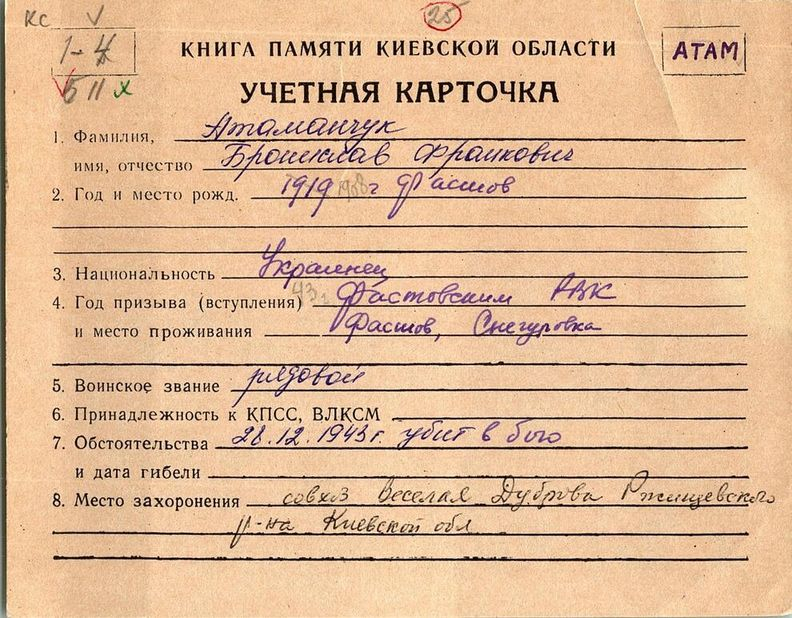 КС V
25
1-4
5 II х
КНИГА ПАМЯТИ КИЕВСКОЙ ОБЛАСТИ
АТАМ
УЧЕТНАЯ КАРТОЧКА
1. Фамилия, Атаманчук
имя, отчество Бронислав Франкович
2. Год и место рожд. 1919 1908 г Фастов
3. Национальность Украинец
4. Год призыва (вступления) 43г Фастовским РВК
и место проживания Фастов, Снегуровка
5. Воинское звание рядовой
6. Принадлежность к КПСС, ВЛКСМ
7. Обстоятельства 28.12.1943г. убит в бою
и дата гибели
8. Место захоронения совхоз Веселая Дуброва Ржищевского
р-на Киевской обл